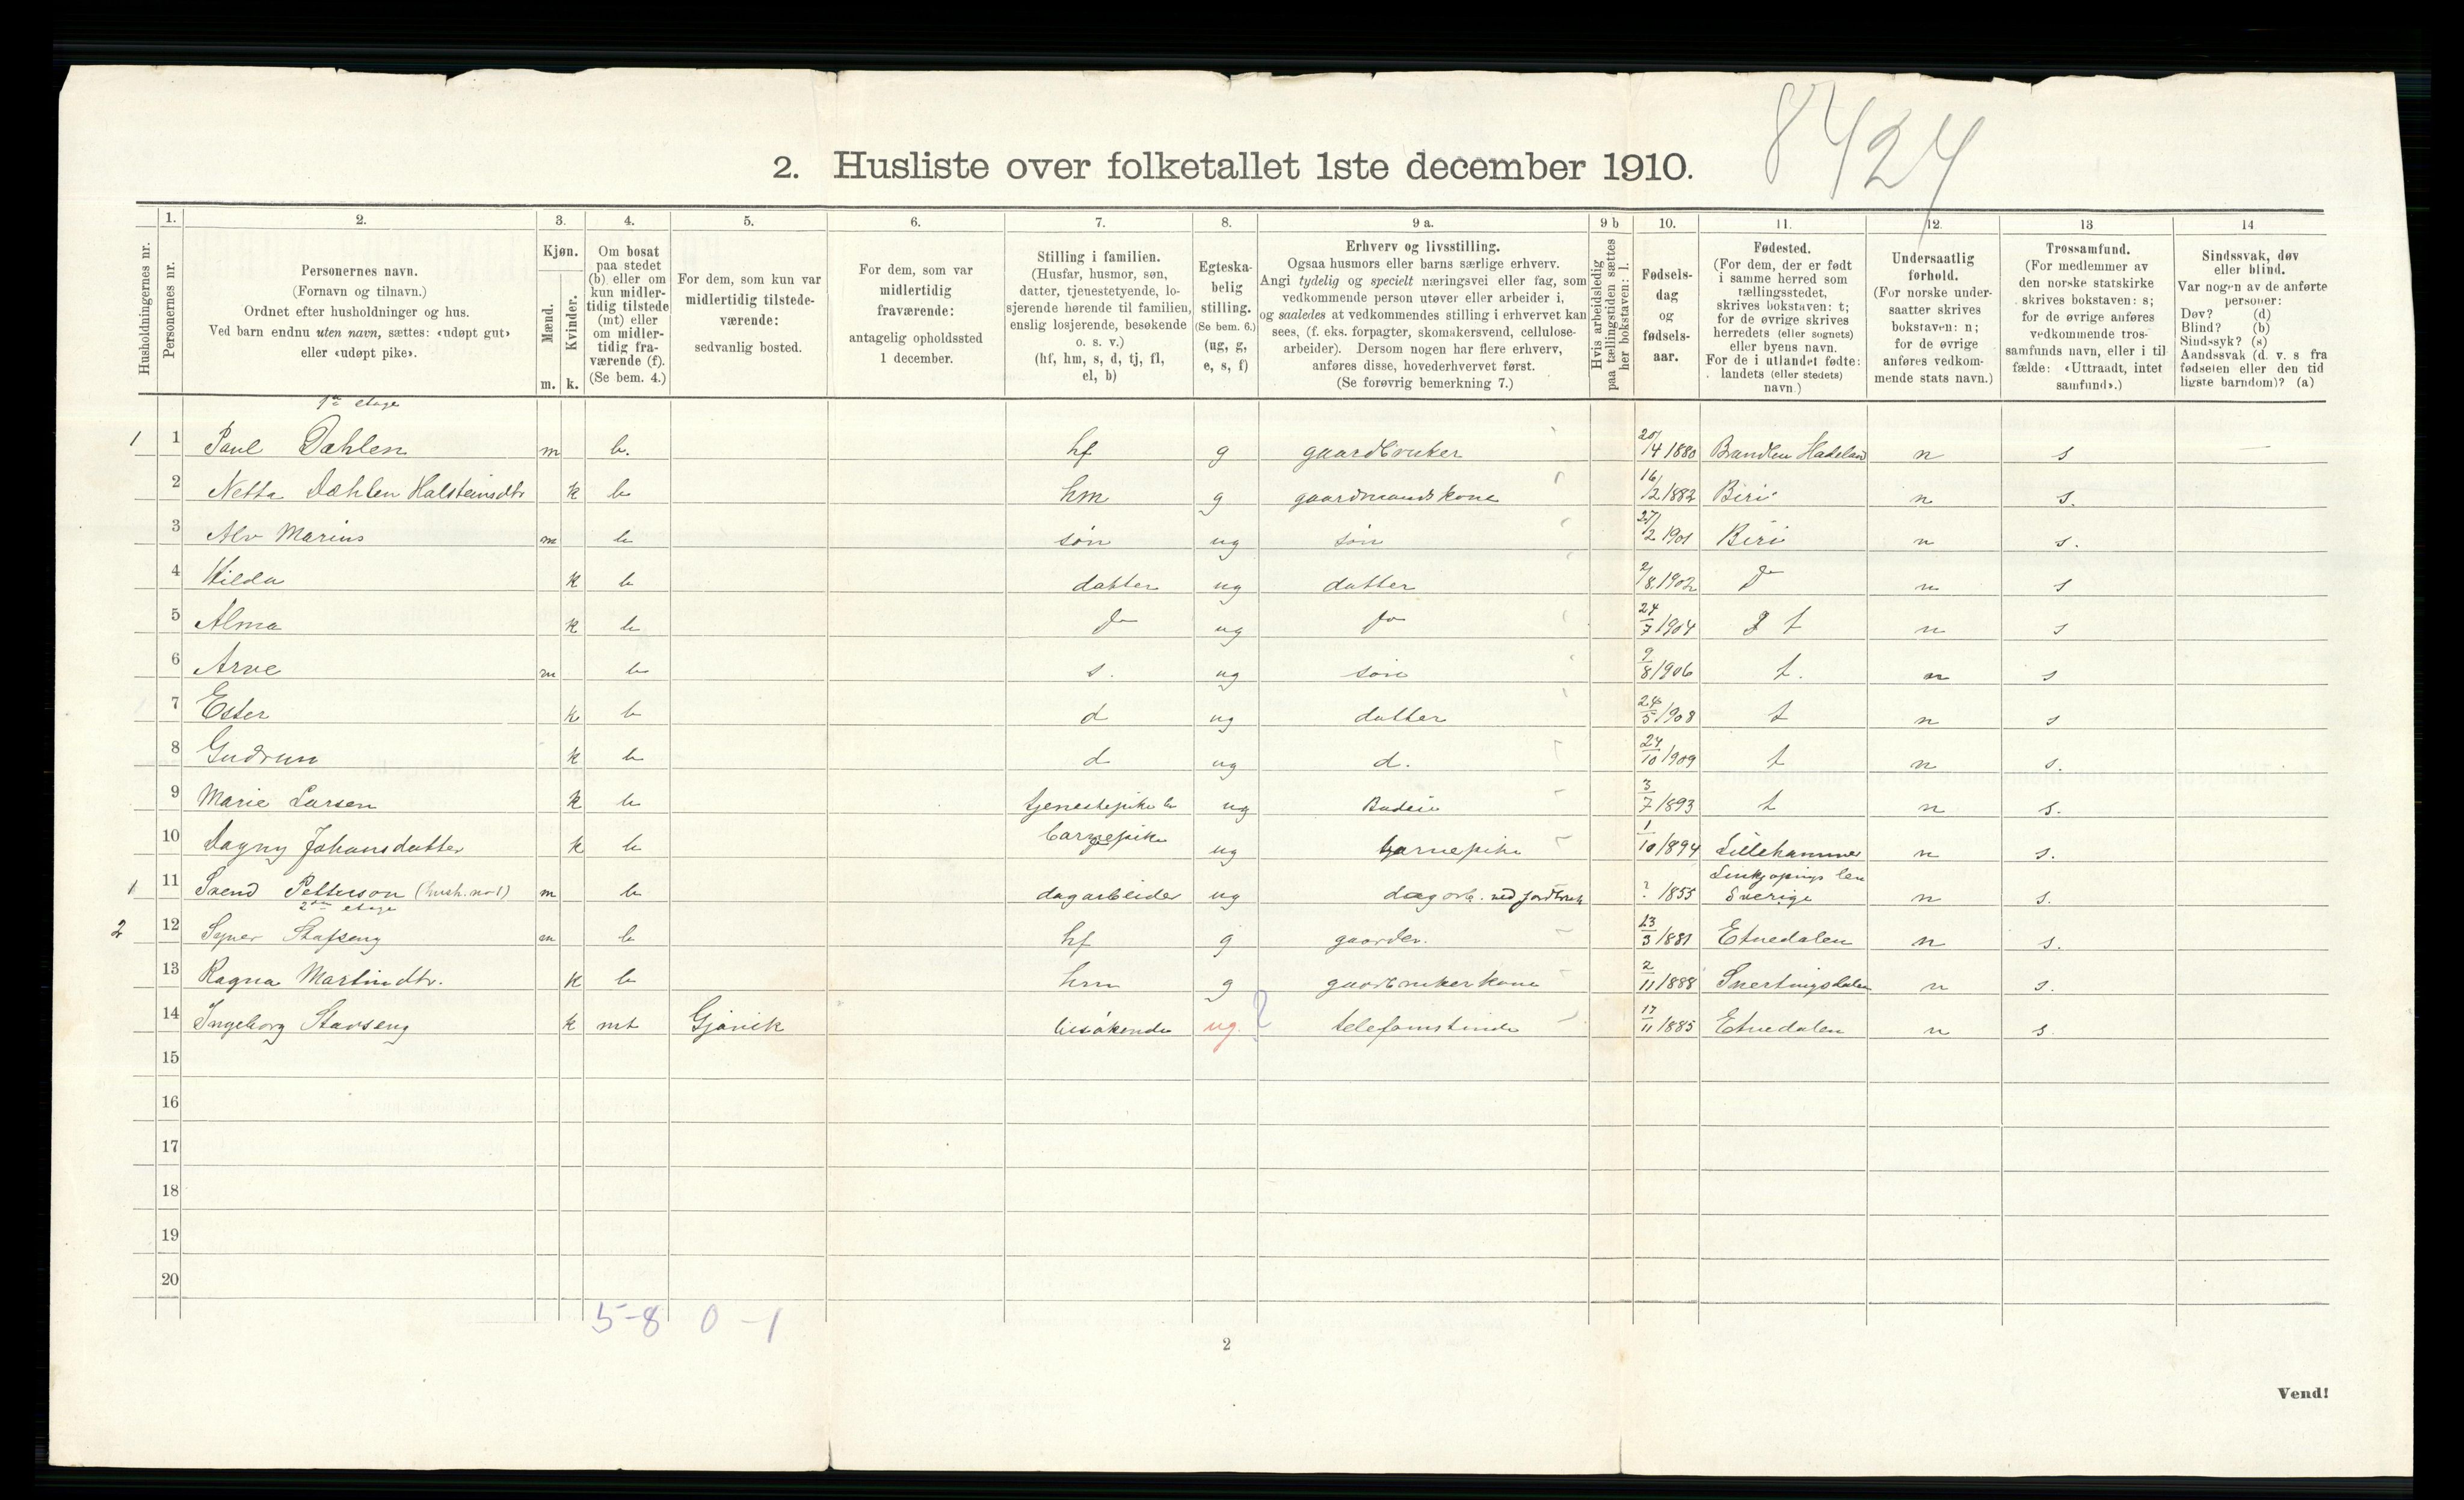 8424
2. Husliste over folketallet 1ste december 1910.
Husholdningernes nr.
1. Personernes nr.
2. Personernes navn. (Fornavn og tilnavn.) Ordnet efter husholdninger og hus. Ved barn endnu uten navn, sættes: «udøpt gut» eller «udøpt pike».
3. Kjøn. Mænd. m. Kvinder. k.
4. Om bosat paa stedet (b) eller om kun midlertidig tilstede (mt) eller om midlertidig fraværende (f). (Se bem. 4.)
5. For dem, som kun var midlertidig tilstedeværende: sedvanlig bosted.
6. For dem, som var midlertidig fraværende: antagelig opholdssted 1 december.
7. Stilling i familien. (Husfar, husmor, søn, datter, tjenestetyende, losjerende hørende til familien, enslig losjerende, besøkende o. s. v.) (hf, hm, s, d, tj, fl, el, b)
8. Egteskabelig stilling. (Se bem. 6.) (ug, g, e, s, f)
9 a. Erhverv og livsstilling. Ogsaa husmors eller barns særlige erhverv. Angi tydelig og specielt næringsvei eller fag, som vedkommende person utøver eller arbeider i, og saaledes at vedkommendes stilling i erhvervet kan sees, (f. eks. forpagter, skomakersvend, cellulosearbeider). Dersom nogen har flere erhverv, anføres disse, hovederhvervet først. (Se forøvrig bemerkning 7.)
9 b Hvis arbeidsledig paa tællingstiden sættes her bokstaven: l.
10. Fødselsdag og fødselsaar.
11. Fødested. (For dem, der er født i samme herred som tællingsstedet, skrives bokstaven: t; for de øvrige skrives herredets (eller sognets) eller byens navn. For de i utlandet fødte: landets (eller stedets) navn.)
12. Undersaatlig forhold. (For norske undersaatter skrives bokstaven: n; for de øvrige anføres vedkommende stats navn.)
13 Trossamfund. (For medlemmer av den norske statskirke skrives bokstaven: s; for de øvrige anføres vedkommende trossamfunds navn, eller i tilfælde: «Uttraadt, intet samfund».)
14 Sindssvak, døv eller blind. Var nogen av de anførte personer: Døv? (d) Blind? (b) Sindssyk? (s) Aandssvak (d. v. s fra fødselen eller den tidligste barndom)? (a)
1ste etage
1 1 Paul Dæhlen m b. hf g gaardbruker 20/4 1880 Brandbu Hadeland n s
2 Netta Dæhlen Halsteinsdtr k b hm g gaardmandskone 16/2 1882 Biri n s.
3 Alv Marius m b søn ug søn 27/2 1901 Biri n s.
4 Hilda k b datter ug datter 2/8 1902 do n s
5 Alma k b do ug do 24/7 1904 t n s
6 Arve m b s. ug søn 9/8 1906 t. n s
7 Ester k b d ug datter 24/5 1908 t n s
8 Gudrun k b d ug d. 24/10 1909 t n s.
9 Marie Larsen k b tjenestepike b ug Budeie 3/7 1893 t n s.
10 Dagny Johansdatter k b barnepike ug barnepike 1/10 1894 Lillehammer n s.
1 11 Svend Petterson (hush. no 1) m b dagarbeider ug dagarb. ved jordbruk ? 1855 Linkjøpings len Sverige n s.
2den etage
2 12 Syver Stafseng m b hf g gaardbr. 23/3 1881 Etnedalen n s.
13 Ragna Martindtr. k b hm g gaardbrukerkone 2/11 1888 Snertingdalen n s.
14 Ingeborg Stavseng k mt Gjøvik besøkende ug. ? telefonistinde 17/11 1885 Etnedalen n s.
15
16
17
18
19
20
5-8 0-1
2
Vend!